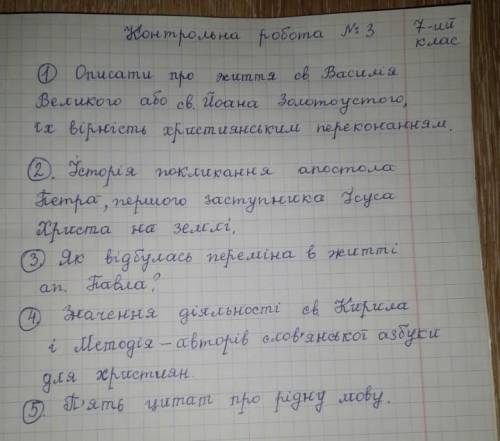 Контрольна робота №3 7-ий
клас
① Описати про життя св Василія
Великого або св. Йоана Золотоустого,
їх вірність християнським переконанням.
②. Історія покликання апостола
Петра, першого заступника Ісуса
Христа на землі.
③. Як відбулась переміна в житті
ап. Павла?
④. Значення діяльності св Кирила
і Методія – авторів слов'янської азбуки
для християн.
⑤. П'ять цитат про рідну мову.